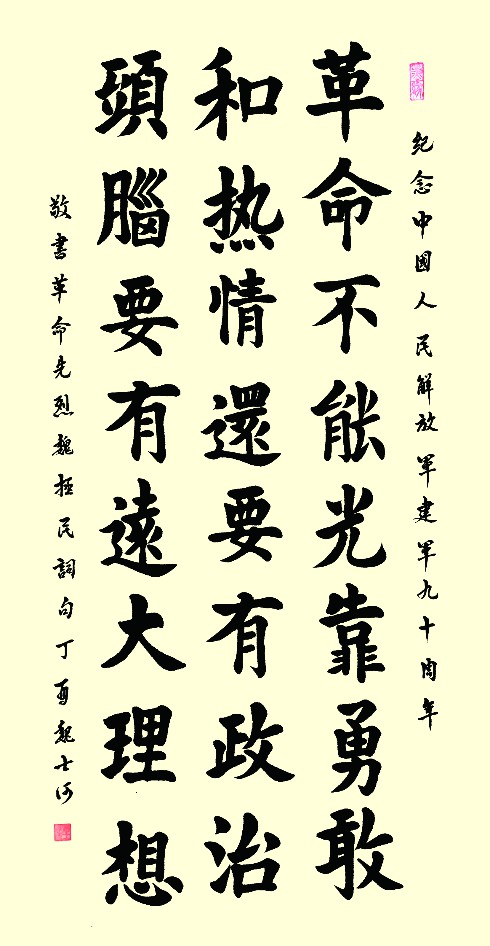 纪念中國人民解放军建军九十周年
革命不能光靠勇敢
和热情還要有政治
頭腦要有遠大理想
敬書革命先烈魏拯民詞句丁酉魏士河